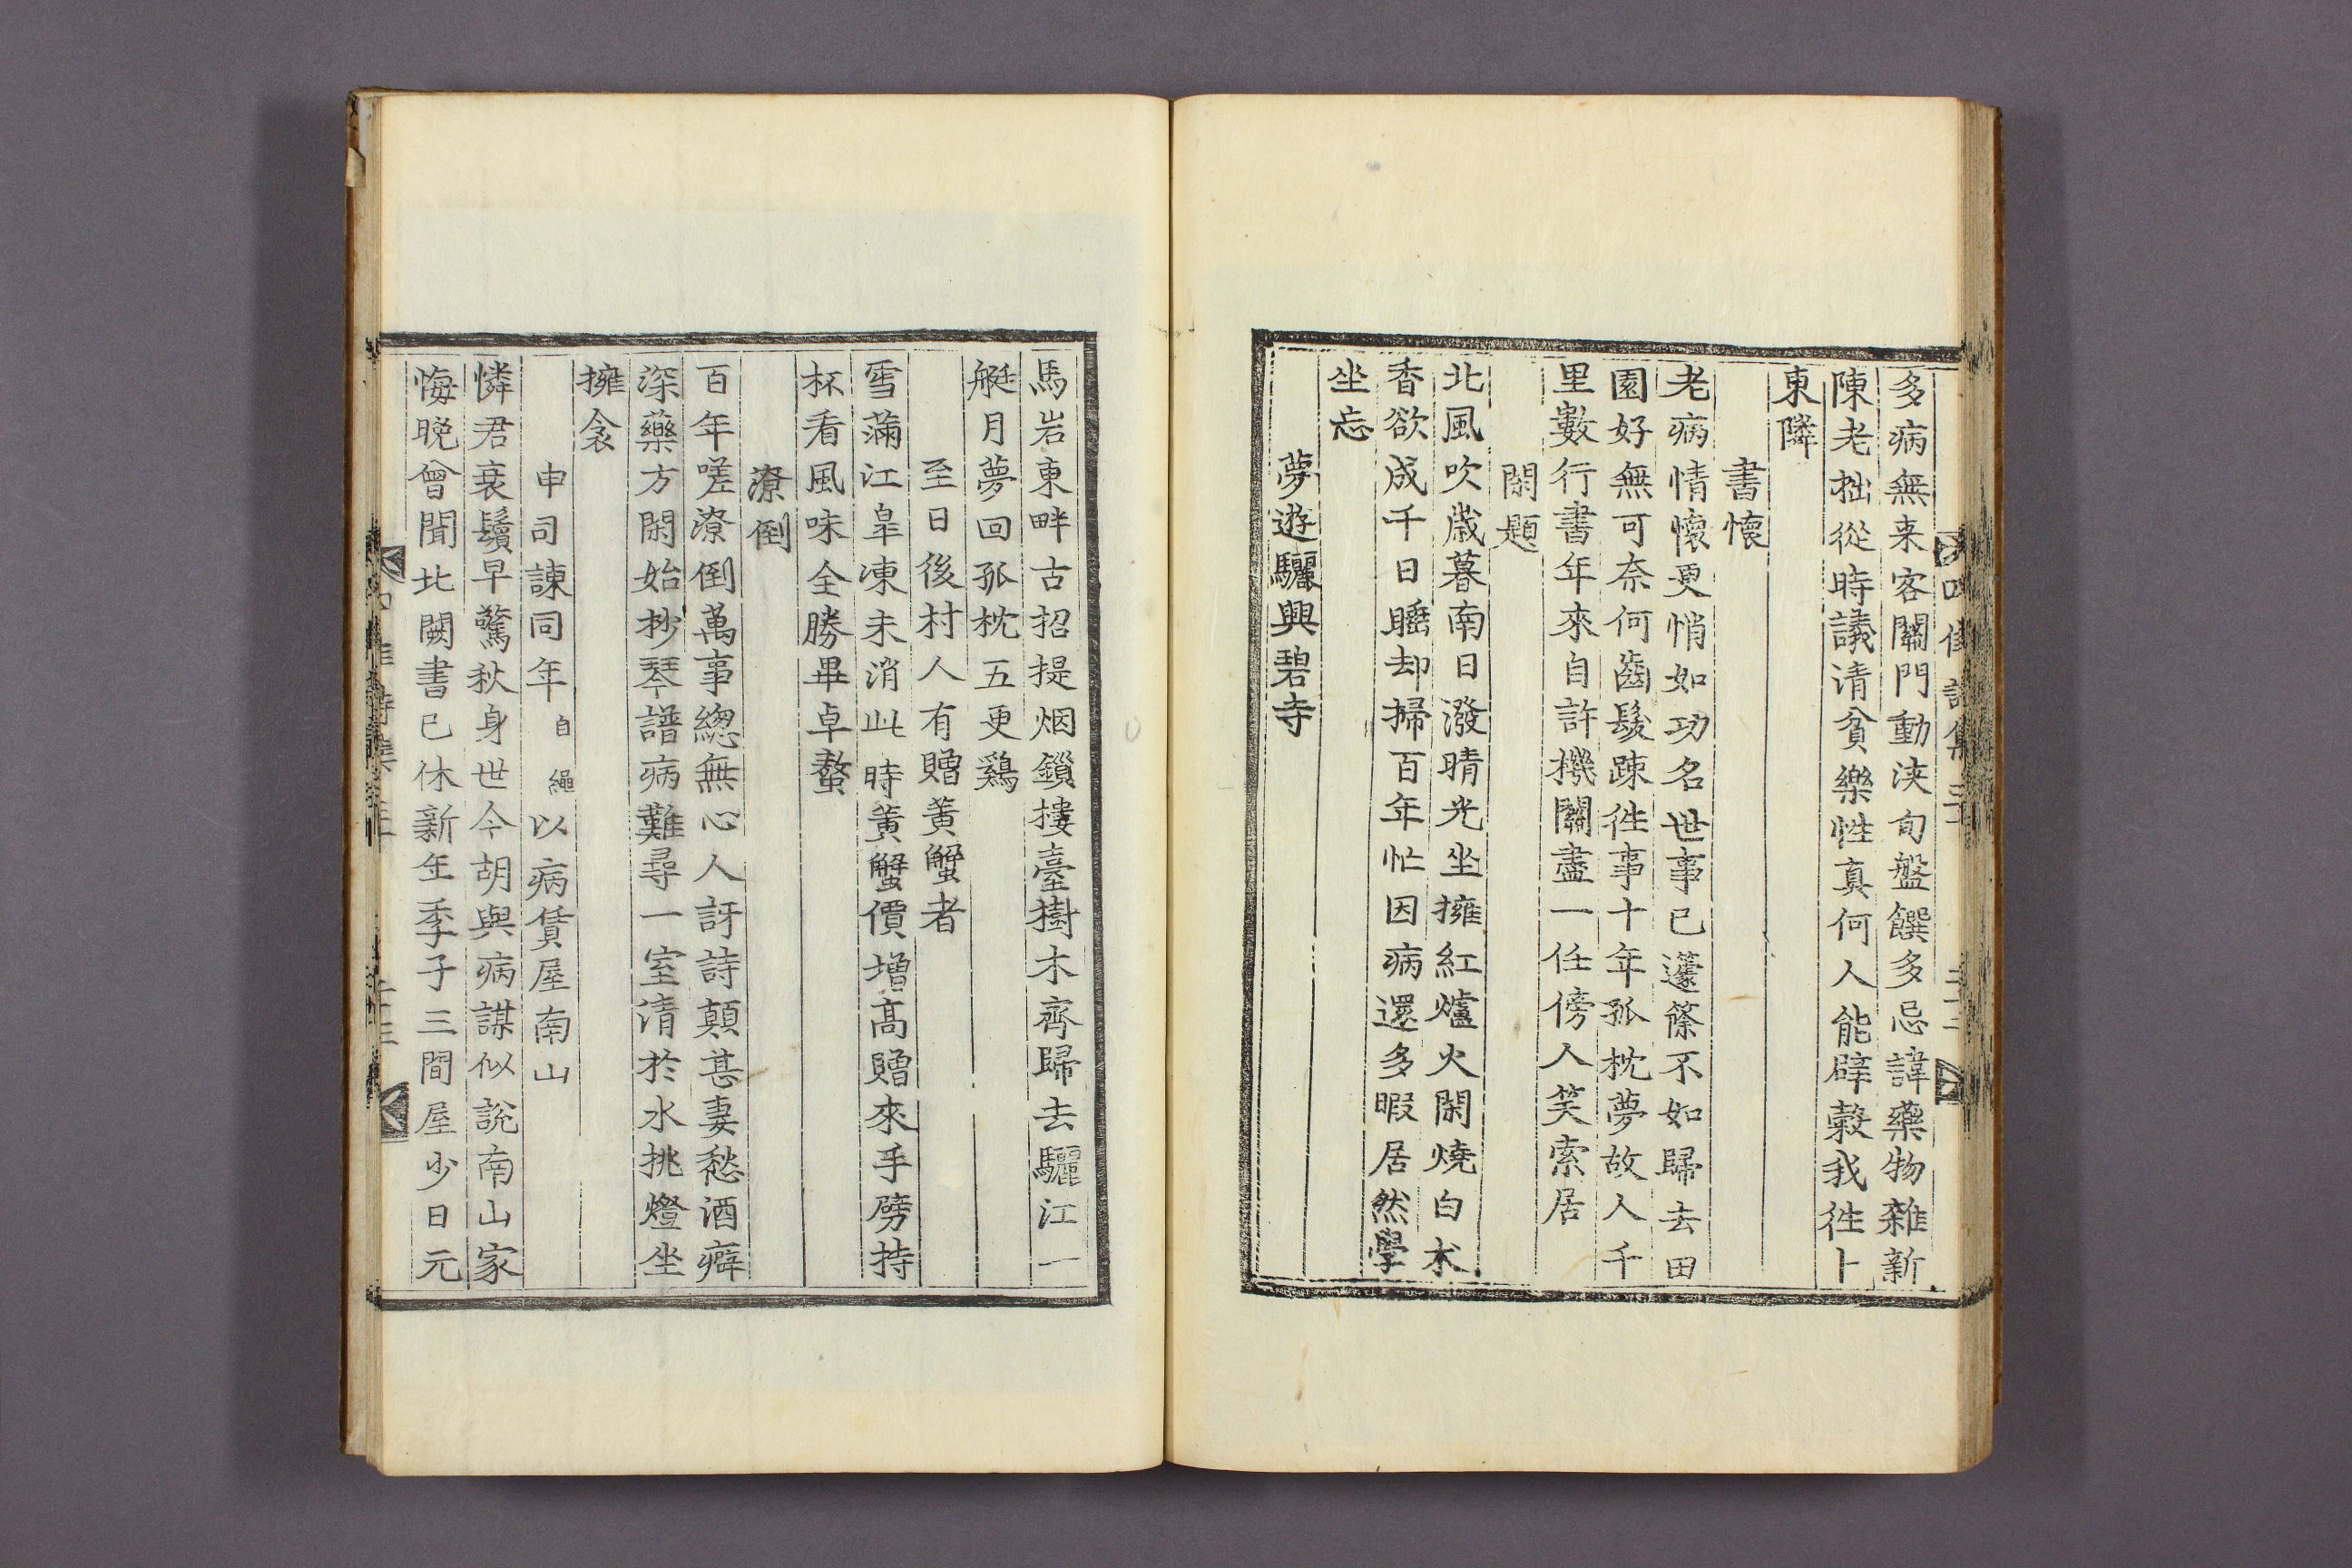 多病無来客關門動浹旬盤饌多忌諱藥物雜新
陳老拙從時議清貧樂性真何人能辟穀我徃卜
東隣
書懷
老病情懷更悄如功名世事已蘧篨不如歸去田
園好無可奈何齒髮踈徃事十年孤枕夢故人千
里數行書年來自許機關盡一任傍人笑索居
閑題
北風吹歲暮南日潑晴光坐擁紅爐火閑燒白朮
香欲成千日睡却掃百年忙因病還多暇居然學
坐忘
夢遊驪興碧寺
馬岩東畔古招提烟鎖摟臺樹木齊歸去驪江一
艇月夢回孤枕五更鷄
至日後村人有贈黃蟹者
雪滿江皐凍未消此時黃蟹價增高贈來手劈持
杯看風味全勝畢卓螯
潦倒
百年嗟潦倒萬事緫無心人訝詩顛甚妻愁酒癖
深藥方閑始抄琴譜病難尋一室清於水挑燈坐
擁衾
申司諫同年自繩以病賃屋南山
憐君衰鬢早驚秋身世今胡與病謀似說南山家
悔晚曾聞北闕書已休新年季子三間屋少日元